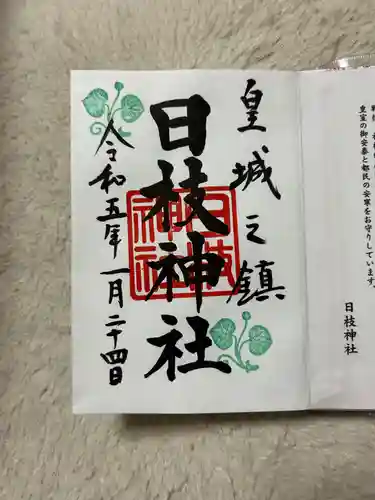 皇城之鎮
日枝神社
日枝神社
令和五年一月二十四日
皇室の御安泰と都民の安寧をお守りしています。
日枝神社